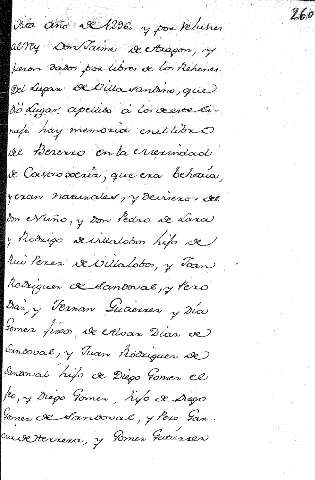 260
Dita año de 1296 y por rehenes
al Rey Don Jaime de Aragon, y
fueron dados por libres de los Rehenes
del Lugar de Villasandino, que
dió Lugar, apellido á los de este Li-
naje hay memoria en el libro
del Bezerro en la Merindad
de Castroxeriz, que era behetria,
y eran naturales, y Deviseros del
Don Nuño, y Don Pedro de Lara
y Rodrigo de Villalobos hijo de
Rui Perez de Villalobos, y Juan
Rodriguez de Sandoval, y Pero
Diaz, y Fernan Gutierrez y Dia
Gomez fijos de Alvar Diaz de
Sandoval, y Juan Rodriguez de
Sandoval hijo de Diego Gomez el
y Diego Gomez, hijo de Diego
Gomez de Sandoval, y Pero Gar-
cia de Herrera, y Gomez Gutierrez